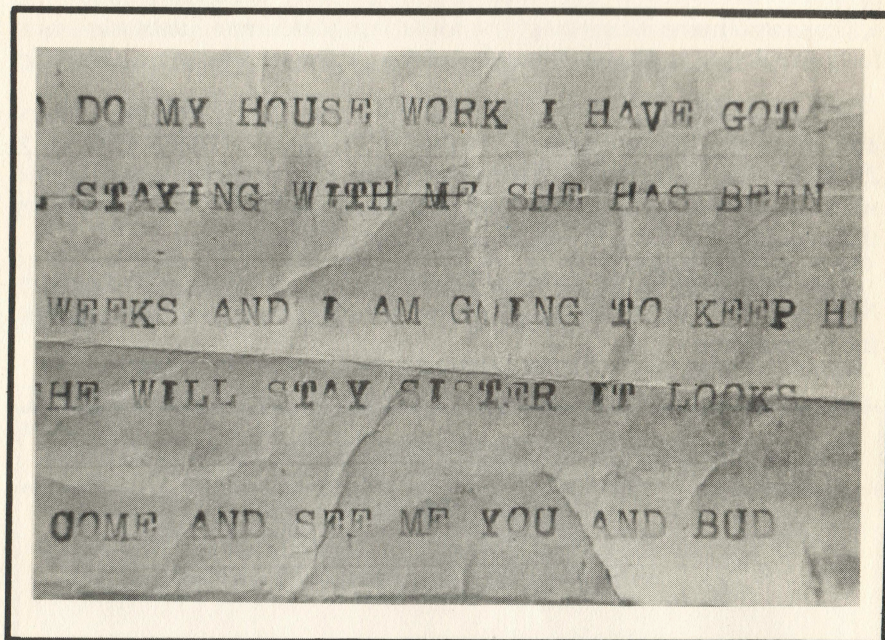 DO MY HOUSE WORK I HAVE GOT
STAYING WITH ME SHE HAS BEEN
WEEKS AND I AM GOING TO KEEP
HE WILL STAY SISTER IT LOOKS
COME AND SEE ME YOU AND BUD